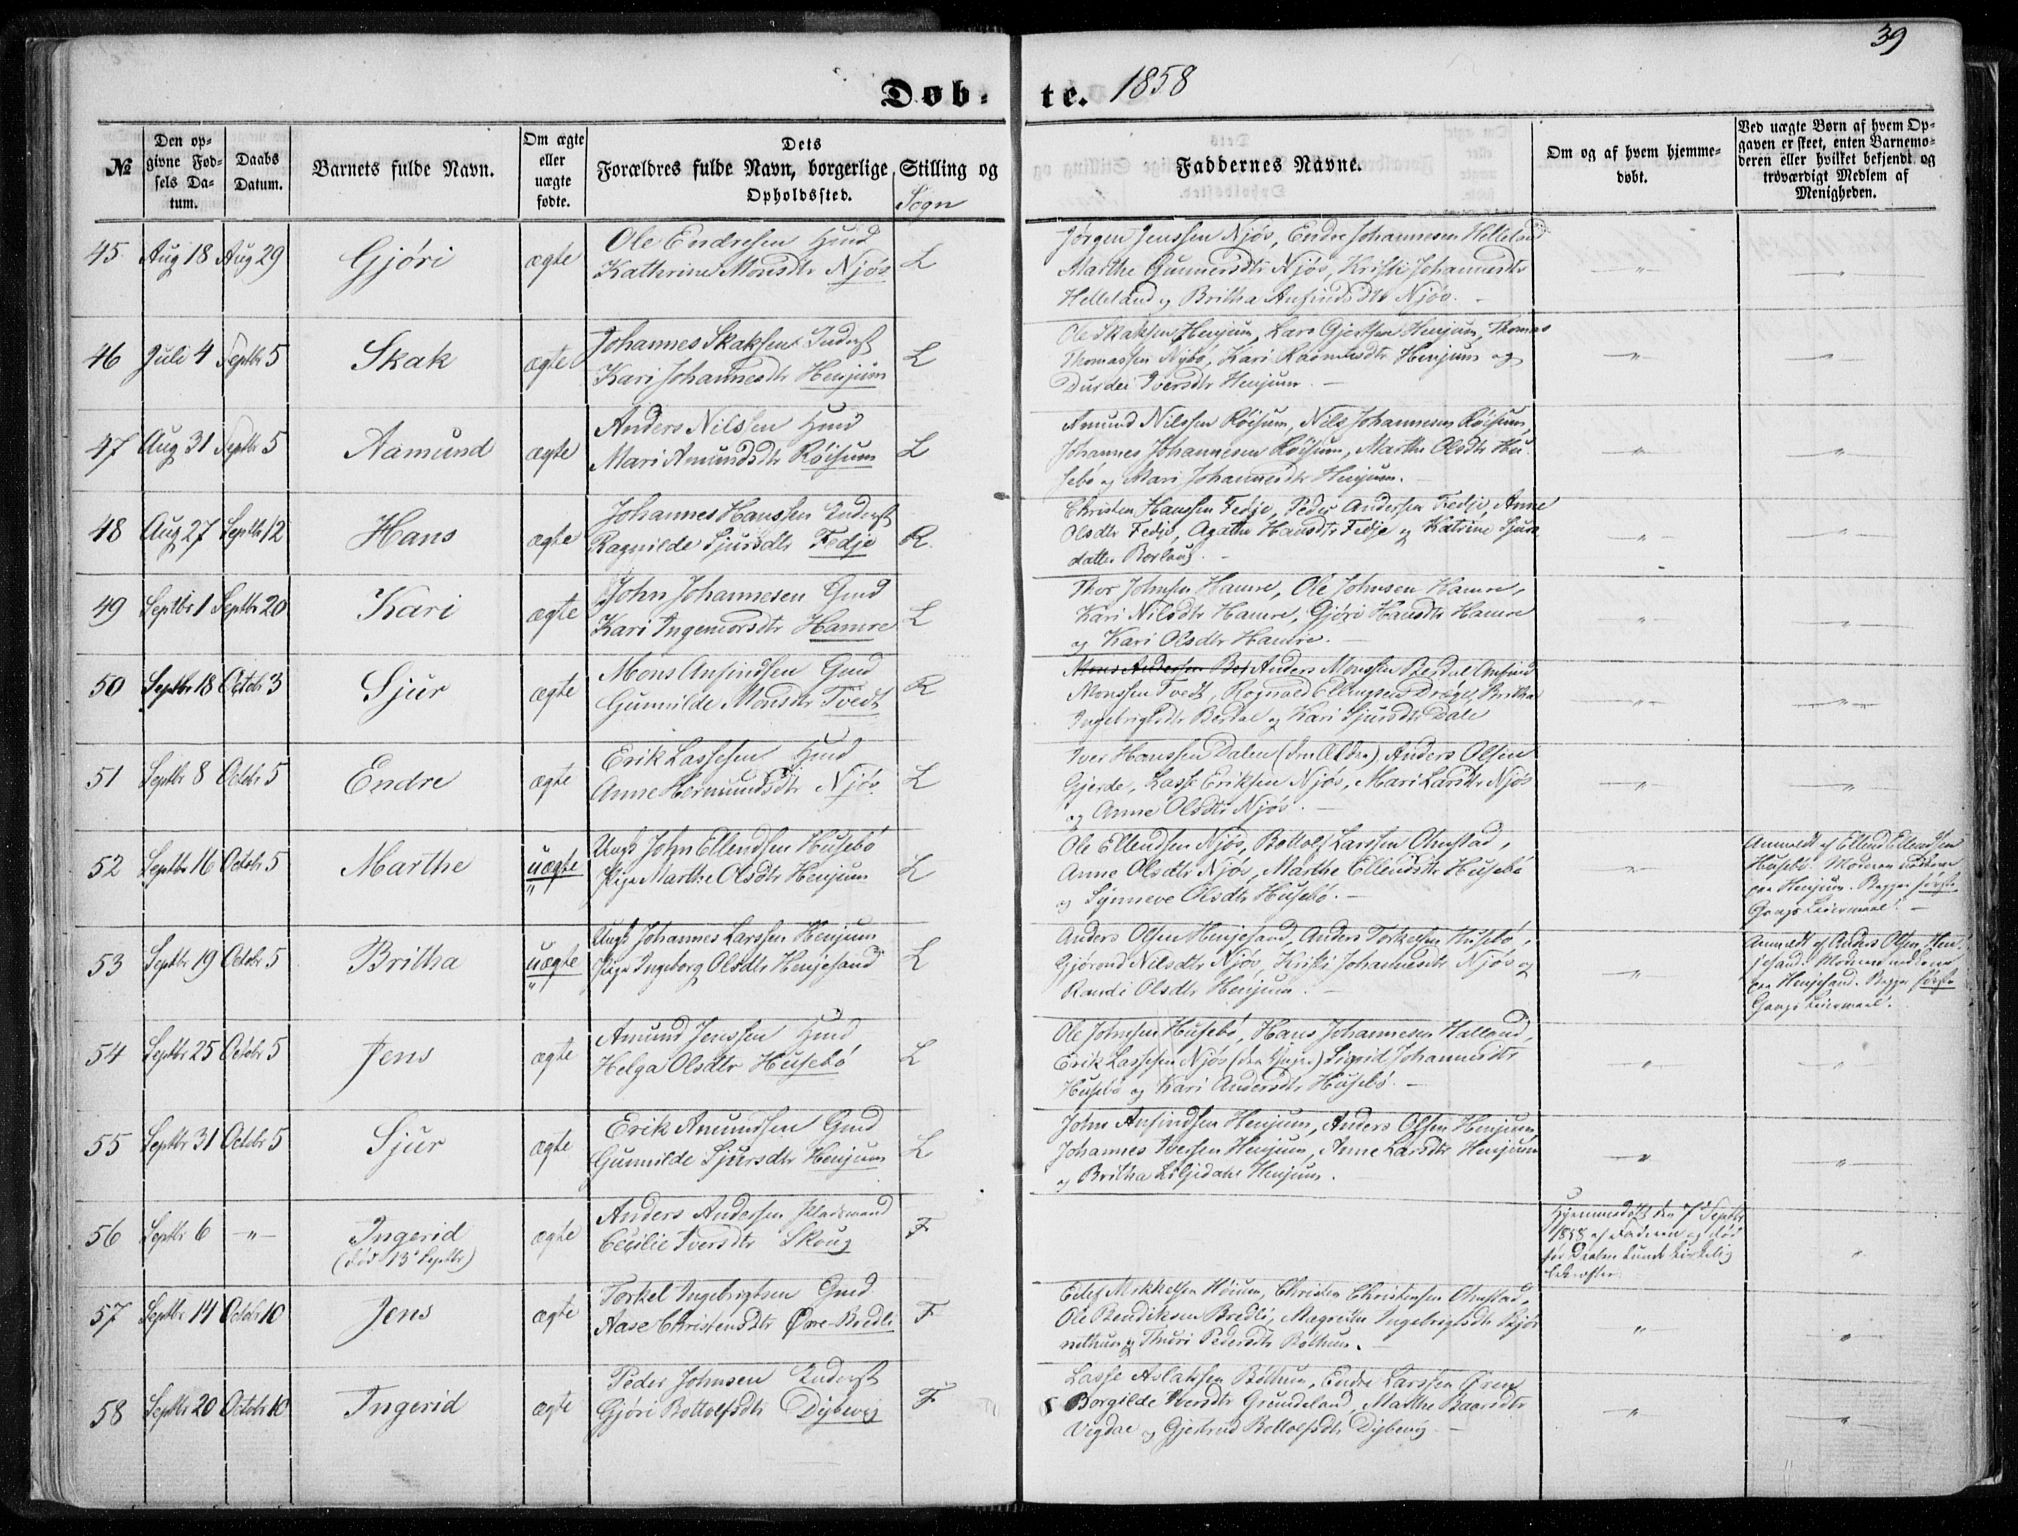 39
Døb-te. 1858
№
Den op-
givne Fød-
sels Da-
tum.
Daabs
Datum.
Barnets fulde Navn.
Om ægte
eller
uægte
fødte.
Dets
Forældres fulde Navn, borgerlige Stilling og
Opholdssted.
Sogn
Faddernes Navne.
Om og af hvem hjemme-
døbt.
Ved uægte Børn af hvem Op-
gaven er skeet, enten Barnemo-
deren eller hvilket bekjendt og
troværdigt Medlem af
Menigheden.
45 Aug 18 Aug 29 Gjøri ægte
Ole Endresen Gmd
Katherine Monsdtr Njøs L
Jørgen Jenssen Njøs, Endre Johannesen Helleland
Marthe Gunnersdtr Njøs, Kristi Johannesdtr
Helleland og Britha Ansindsdtr Njøs.
46 Juli 4 Septbr 5 Skak ægte
Johannes Skaksen Inderst
Kari Johannesdtr Henjum L
Ole Skaksen Henjum, Lars Gjertsen Henjum, Thomas
Thomassen Nybø, Kari Rasmusdtr Henjum og
Durdei Iversdtr Henjum.
47 Aug 31 Septbr 5 Aamund ægte
Anders Nilssen Gmd
Mari Amundsdtr Röisum L
Amund Nilssen Röisum, Nils Johannesen Röisum,
Johannes Johannesen Röisum, Marthe Olsdtr Hu-
sebø og Mari Johannesdtr Henjum.
48 Aug 27 Septbr 12 Hans ægte
Johannes Hanssen Inderst
Ragnilde Sjursdtr Fedje R.
Christen Hanssen Fedje, Peder Andersen Fedje, Anne
Olsdtr Fedje, Agathe Hansdtr Fedje og Katrine Sjurs
datter Borlaug.
49 Septbr 1 Septbr 20 Kari ægte
John Johannesen Gmd
Kari Ingemorsdtr Hamre L
Thor Johnsen Hamre, Ole Johnsen Hamre,
Kari Nilsdtr Hamre, Gjöri Hansdtr Hamre
og Kari Olsdtr Hamre.
50 Septbr 18 Octobr 3 Sjur ægte
Mons Ansindsen Gmd
Gunnilde Monsdtr Tvedt R
Mons Andersen Anders Monssen Berdal Ansind
Monssen Tvedt, Rognald Ellingsen, Britha
Ingebrigtsdtr Berdal og Kari Sjursdtr Dale
51 Septbr 8 Octobr 5 Endre ægte
Erik Lassesen Gmd
Anne Hermundsdtr Njøs L
Iver Hanssen Dalen (den Ældre), Anders Olsen
Gjerde, Lasse Eriksen Njøs, Mari Larsdtr Njøs
og Anne Olsdtr Njøs.
52 Septbr 16 Octobr 5 Marthe uægte
Ungk John Ellendsen Husebø
Pige Marthe Olsdtr Henjum L
Ole Ellendsen Njøs, Bottolf Larssen Ohnstad,
Anne Olsdtr Njøs, Marthe Ellendsdtr Husebø
og Synneve Olsdtr Husebø.
Anmeldt af Ellend Ellendsen
Husebø. Moderen
paa Henjum. Begges første
Gangs Leiermaal.
53 Septbr 19 Octobr 5 Britha uægte
Ungk Johannes Larssen Henjum
Pige Ingeborg Olsdtr Henjesand L
Anders Olsen Henjesand, Anders Torkelsen Husebø,
Gjørond Nilsdtr Njøs, Kristi Johannesdtr Njøs og
Randi Olsdtr Henjum.
Anmeldt af Anders Olsen Hen-
jesand. Moderen
paa Henjesand. Begges første
Gangs Leiermaal.
54 Septbr 25 Octobr 5 Jens ægte
Amund Jenssen Gmd
Helga Olsdtr Husebø L
Ole Johnsen Husebø, Hans Johannesen Halland,
Erik Lassesen Njøs (den Yngre) Sigrid Johannesdtr
Husebø og Kari Andersdtr Husebø.
55 Septbr 31 Octobr 5 Sjur ægte
Erik Amundsen Gmd
Gunnilde Sjursdtr Henjum L
John Ansindsen Henjum, Anders Olsen Henjum,
Johannes Iversen Henjum, Anne Larsdtr Henjum
og Britha Liljedahl Henjum.
56 Septbr 6 Ingerid ægte
(död 13de Septbr)
Anders Andersen Pladsmand
Cecilie Iversdtr Skoug F
Hjemmedøbt den 7de Septbr
1858 af Faderen og død
før Daaben kunde kirkelig
bekræftes.
57 Septbr 14 Octobr 10 Jens ægte
Torkel Ingebrigtsen Gmd
Aase Christensdtr Øvre-Bredli F
Edlef Mikkelsen Høium, Christen Christensen Ohnstad,
Ole Bendiksen Bredli, Magrethe Ingebrigtsdtr Skjær
og Thuri Pedersdtr Bøthun.
58 Septbr 20 Octobr 10 Ingerid ægte
Peder Johnsen Inderst
Gjöri Bottolfsdtr Dybevig F
Lasse Aslaksen Bøthun, Endre Larssen Øren
Borgilde Iversdtr Grændeland, Marthe Baardsdtr
Vigdal og Gjertrud Bottolfsdtr Dybevig